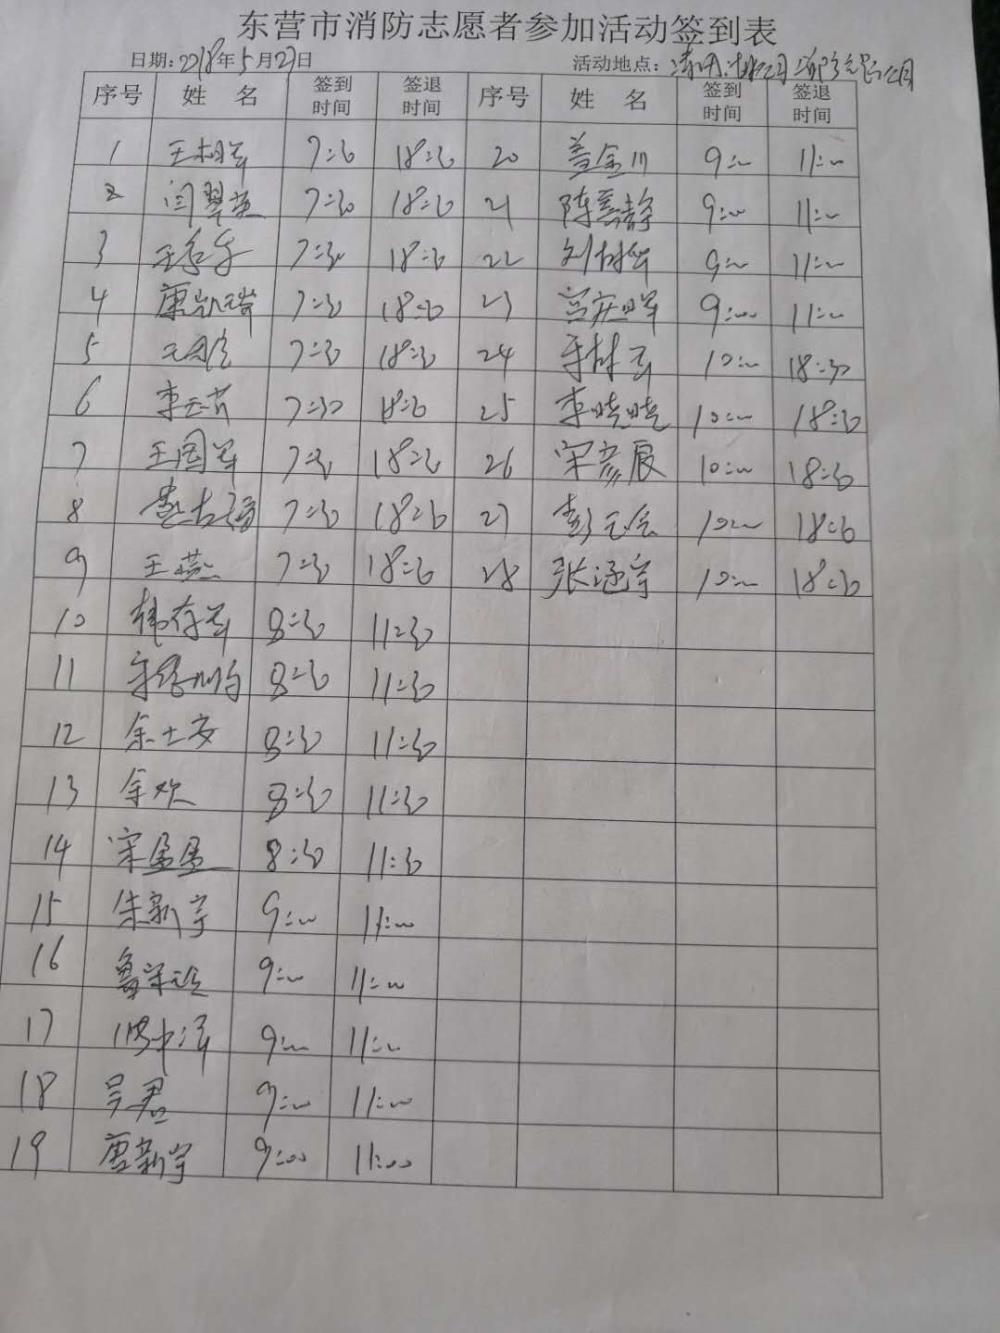 东营市消防志愿者参加活动签到表
日期:2018年5月27日 活动地点:
序号 姓 名 签到时间 签退时间 序号 姓 名 签到时间 签退时间
1 王相军 7:30 18:30 20 盖金川 9:00 11:00
2 闫翠英 7:30 18:30 21 陈喜静 9:00 11:00
3 7:30 18:30 22 刘树华 9:00 11:00
4 唐凯瑞 7:30 18:30 23 9:00 11:00
5 7:30 18:30 24 10:00 18:30
6 李玉芹 7:30 18:30 25 李晓晓 10:00 18:30
7 王国军 7:30 18:30 26 宋彦辰 10:00 18:30
8 7:30 18:30 27 彭元会 10:00 18:30
9 王燕 7:30 18:30 28 张涵宇 10:00 18:30
10 韩存军 8:30 11:30
11 8:30 11:30
12 余士安 8:30 11:30
13 余欢 8:30 11:30
14 宋孟孟 8:30 11:30
15 朱新宇 9:00 11:00
16 9:00 11:00
17 9:00 11:00
18 吴君 9:00 11:00
19 唐新宇 9:00 11:00